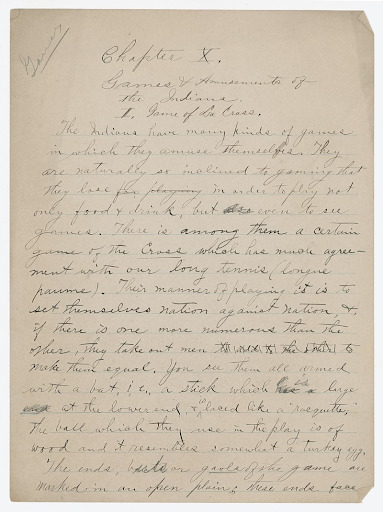 Games
Chapter X.
Games & Amusements of
the Indians.
I. Game of La Cross.
The Indians have many kinds of games
in which they amuse themselves. They
are naturally so inclined to gaming that
they lose for playing in order to play not
only food & drink, but even to see
games. There is among them a certain
game of the Cross which has much agree-
ment with our long tennis (longue
paume). Their manner of playing it is to
set themselves nation against nation, &,
if there is one more numerous than the
other, they take out men to
make them equal. You see them all armed
with a bat, i.e., a stick which is large
at the lower end, & laced like a "racquette;"
the ball which they use in the play is of
wood and it resembles somewhat a turkey egg.
The ends, or goals of the game are
marked in an open plain; these ends face